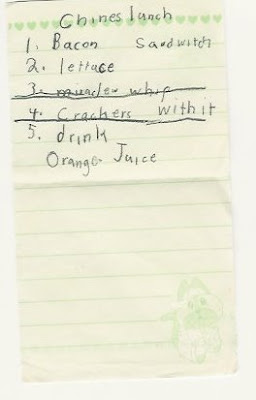 Chines lunch
1. Bacon Sandwitch
2. lettuce
3. miracle whip
4. Crackers with it
5. drink
Orange Juice